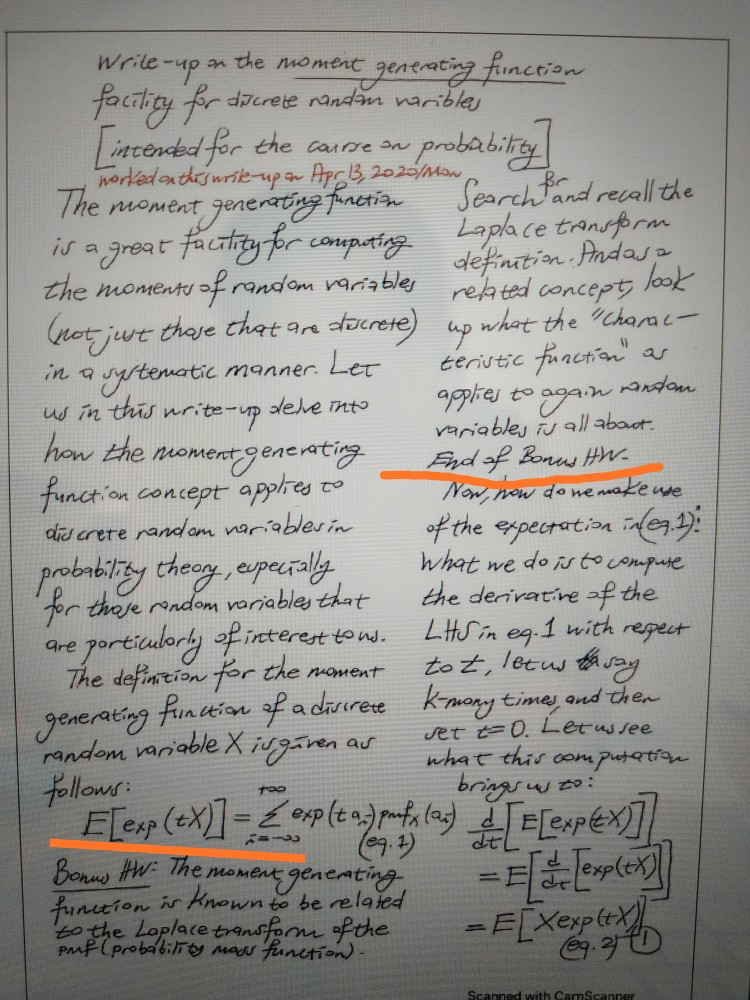 Write-up on the moment generating function
facility for discrete random varibles
[intended for the course on probability]
worked on this write-up on Apr 13, 2020/Mon
The moment generating function
is a great facility for computing
the moments of random variables
(not just those that are discrete)
in a systematic manner. Let
us in this write-up delve into
how the moment generating
function concept applies to
discrete random variables in
probability theory, especially
for those random variables that
are particularly of interest to us.
The definition for the moment
generating function of a discrete
random variable X is given as
follows:
E[exp(tX)] = Σ_{i=-∞}^{+∞} exp(t a_i) pmf_X(a_i)
(eq. 1)
Bonus HW: The moment generating
function is known to be related
to the Laplace transform of the
pmf (probability mass function).
Search for and recall the
Laplace transform
definition. And as a
related concept, look
up what the "charac-
teristic function" as
applies to again random
variables is all about.
End of Bonus HW.
Now, how do we make use
of the expectation in (eq.1):
What we do is to compute
the derivative of the
LHS in eq. 1 with respect
to t, let us say
k-many times, and then
set t=0. Let us see
what this computation
brings us to:
d/dt [E[exp(tX)]]
= E[d/dt [exp(tX)]]
= E[X exp(tX)]
(eq. 2) 1
Scanned with CamScanner